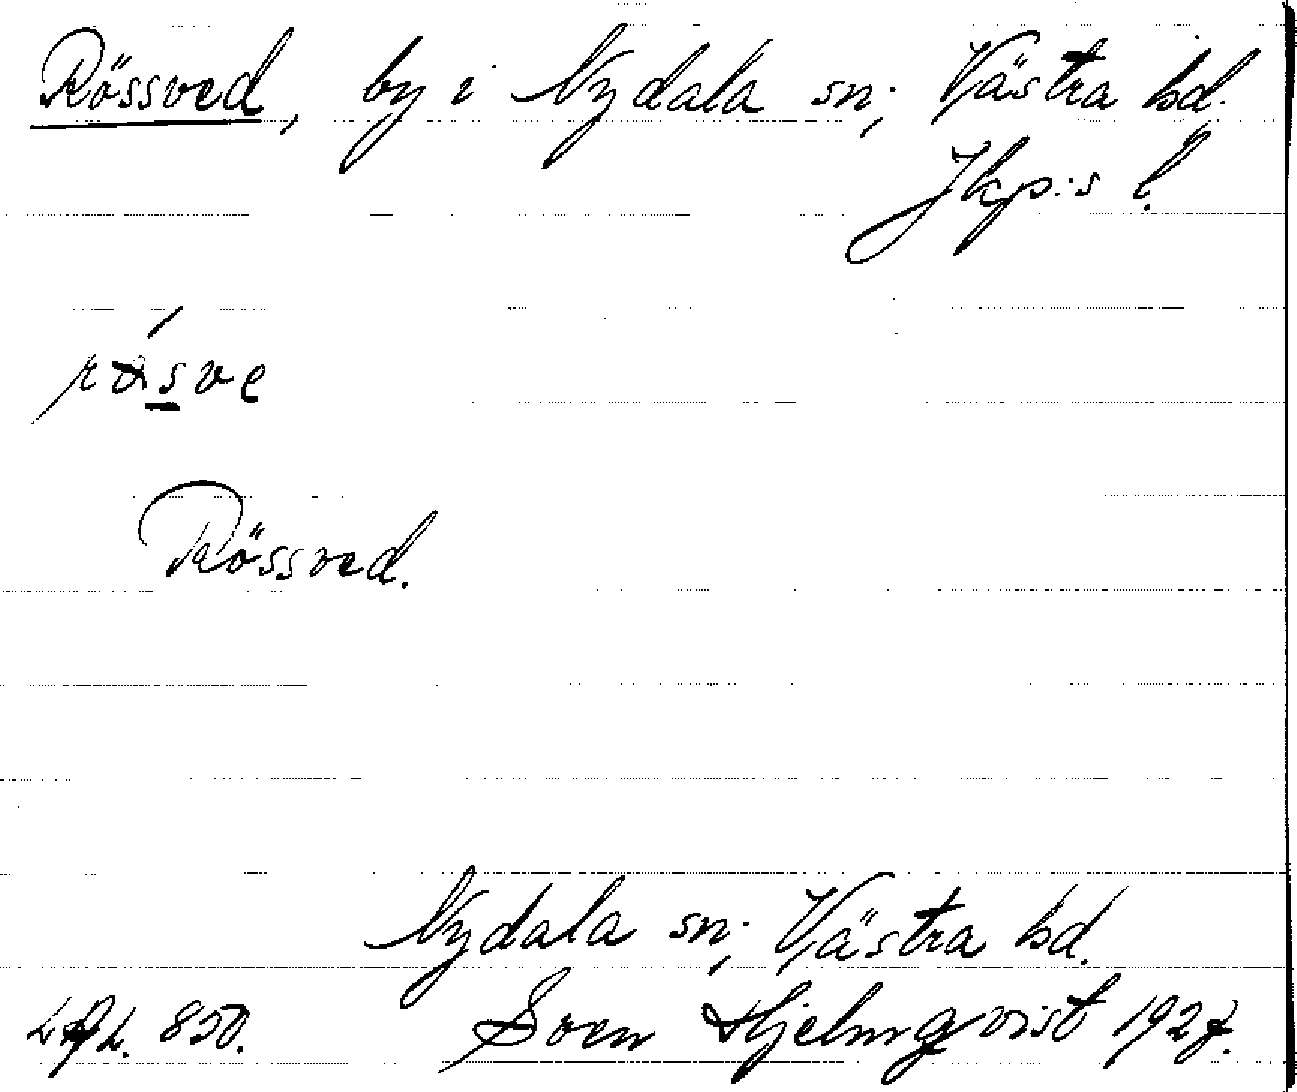 Rössved, by i Nydala sn; Västra hd.
Jkp:s l.
Rössved.
Nydala sn; Västra hd.
850. Sven Hjelmqvist 1927.